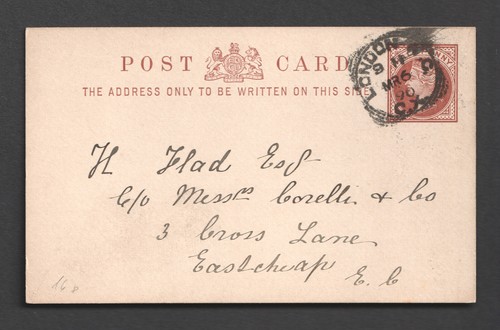 POST CARD
THE ADDRESS ONLY TO BE WRITTEN ON THIS SIDE
LONDON E.C
MR 6
90
C.X
H Flad Esq
C/o Messrs Corelli & Co
3 Cross Lane
Eastcheap
E. C